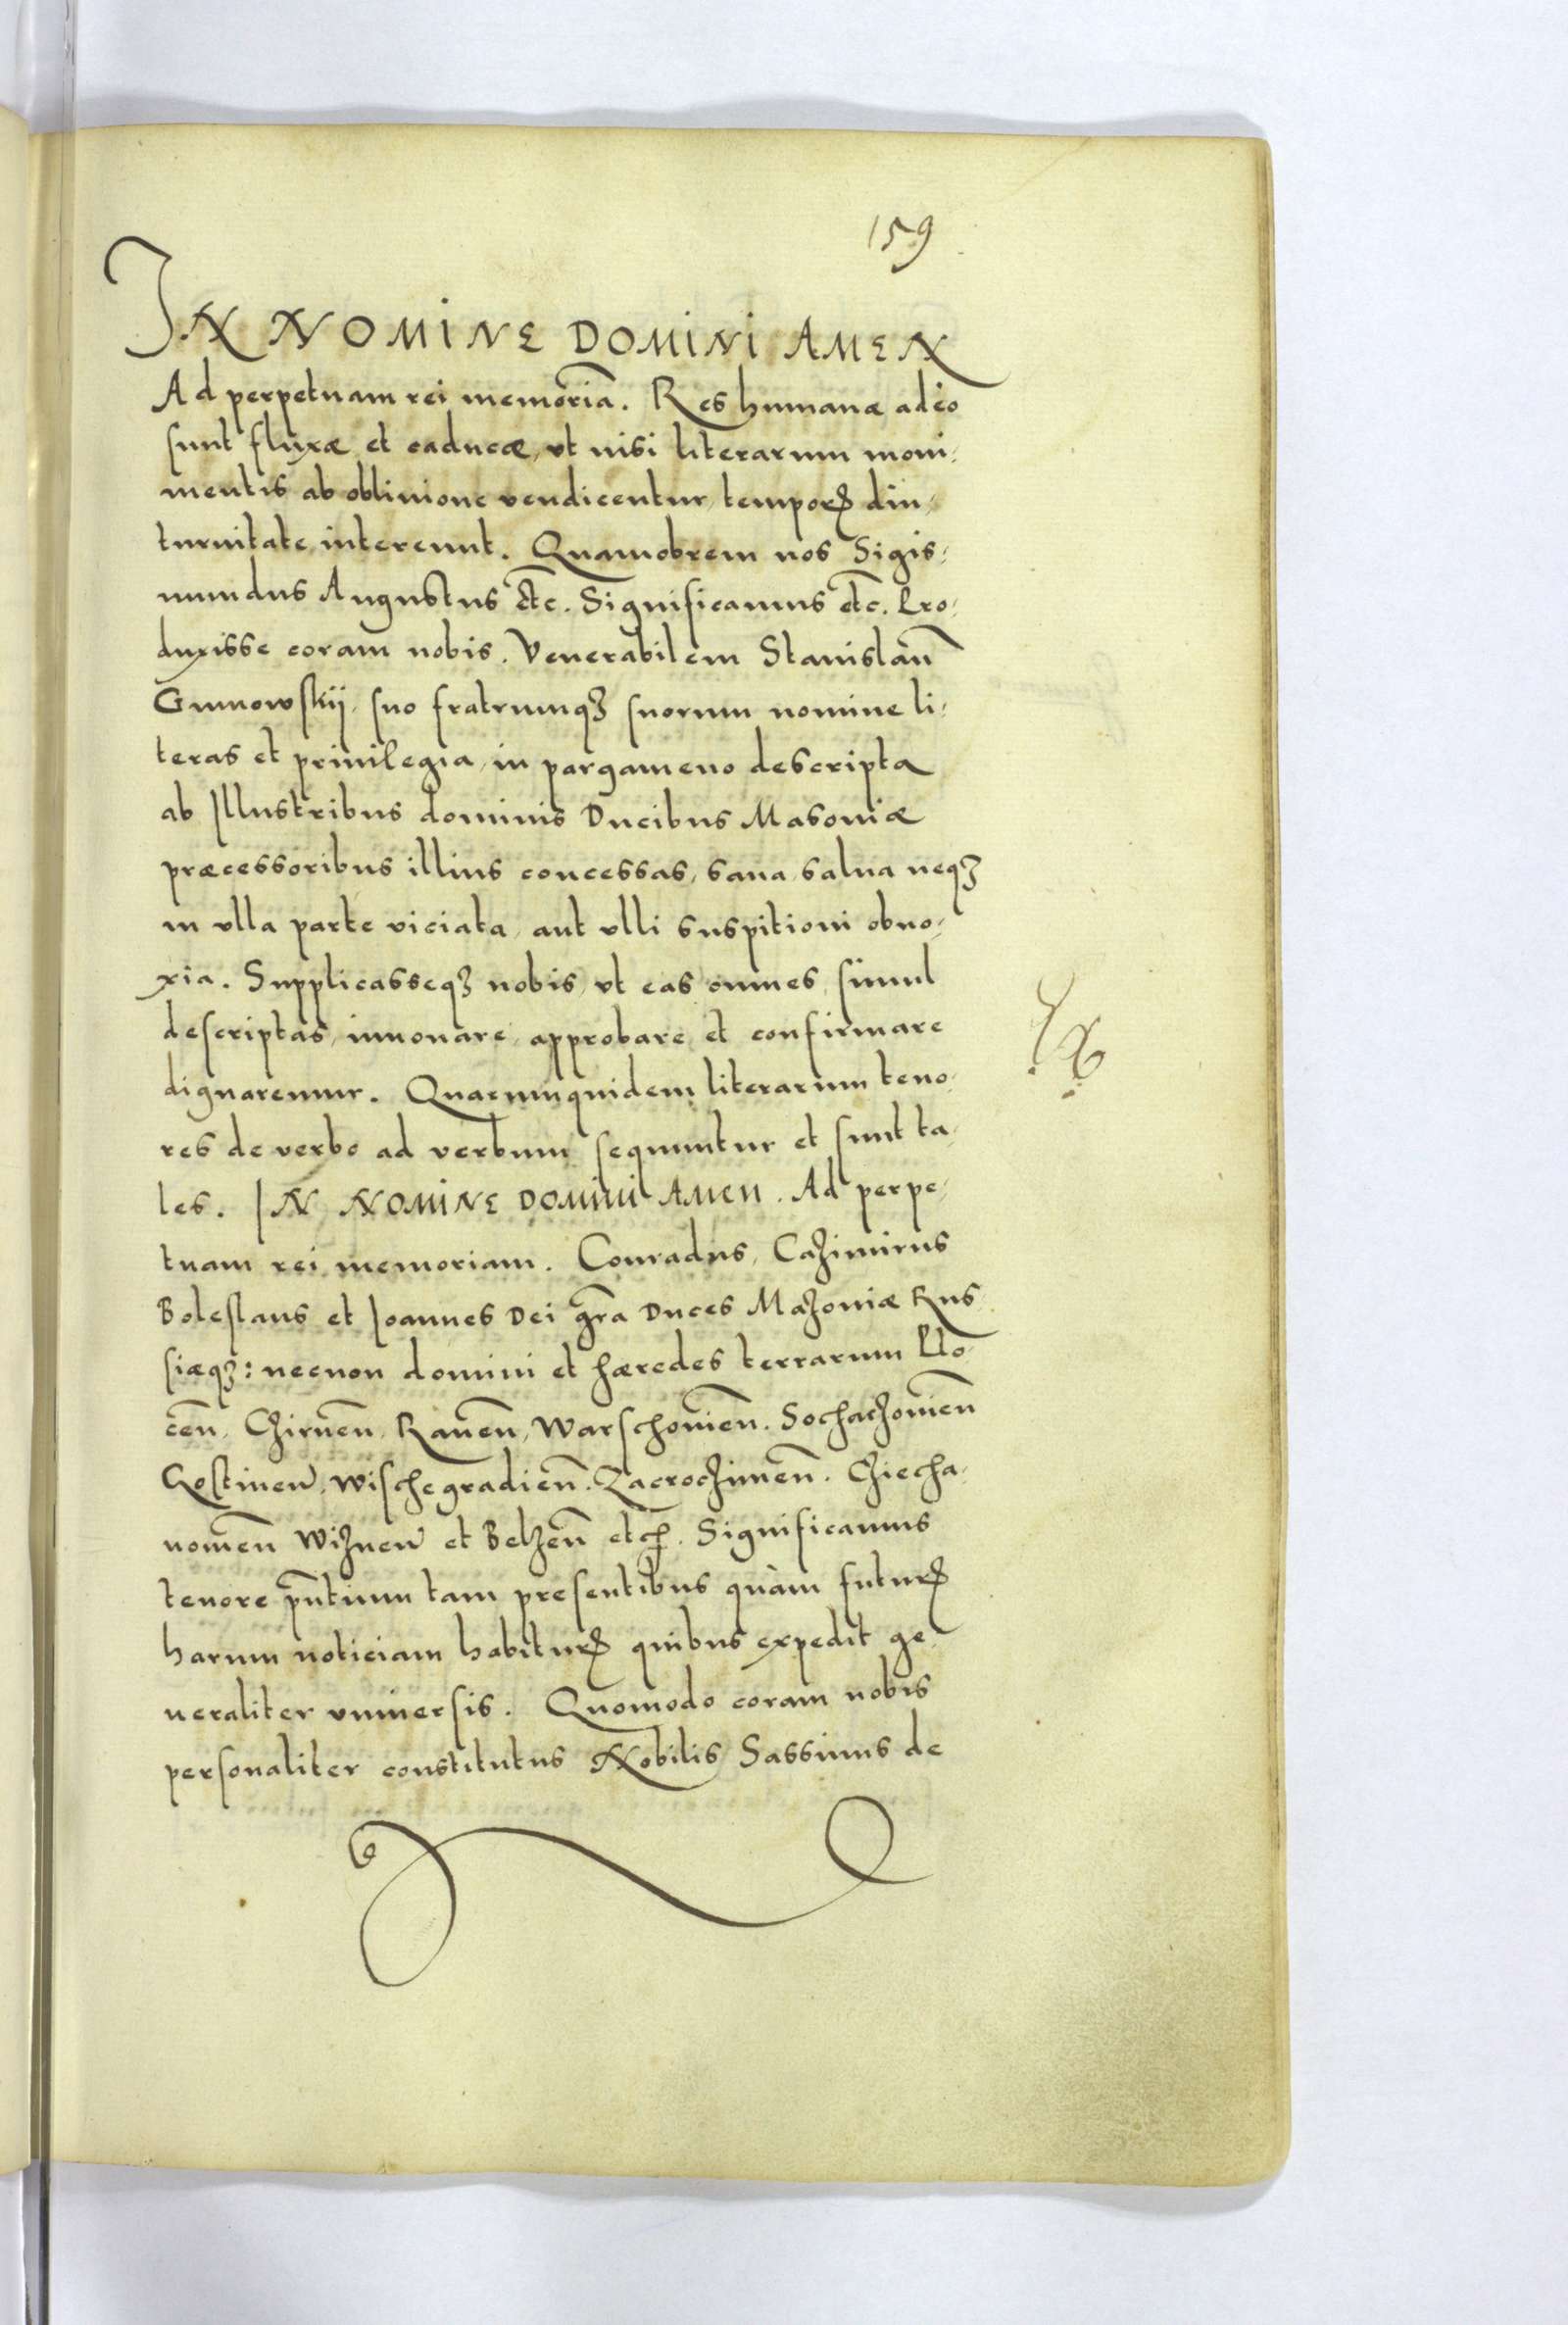 159
IN NOMINE DOMINI AMEN
Ad perpetuam rei memoriā. Res humanæ adeo
sunt fluxæ et caducæ, vt nisi literarum moni-
mentis ab obliuione vendicentur, temporꝝ diu-
turnitate intereunt. Quamobrem nos Sigis-
mundus Augustus etc. Significamus etc. Pro-
duxisse coram nobis. Venerabilem Stanislaū
Gumowskij, suo fratrumqꝫ suorum nomine li-
teras et priuilegia, in pargameno descripta
ab Illustribus dominis Ducibus Masoniæ
præcessoribus illius concessas, sana, salua neqꝫ
in vlla parte viciata, aut vlli suspitioni obno-
xia. Supplicasseqꝫ nobis, vt eas omnes, simul
descriptas, innouare, approbare, et confirmare
dignaremur. Quarumquidem literarum teno-
res de verbo ad verbum sequuntur et sunt ta-
les. IN NOMINE DOMINI AMEN. Ad perpe-
tuam rei memoriam. Conradus, Cazimirus
Boleslaus et Ioannes Dei gr̄a Duces Mazoniæ Rus-
siæqꝫ: necnon domini et hæredes terrarum Plo-
cēn, Czirnēn, Rauēn, Warschouiēn. Sochaczouiēn
Gostinen̄, Wischegradiēn. Zacroczimēn. Cziecha-
nouiēn Wiznen̄ et Belzēn etc. Significamus
tenore pn̄tium tam presentibus quàm futurꝝ
harum noticiam habiturꝝ quibus expedit ge-
neraliter vniuersis. Quomodo coram nobis
personaliter constitutus Nobilis Sassinus de